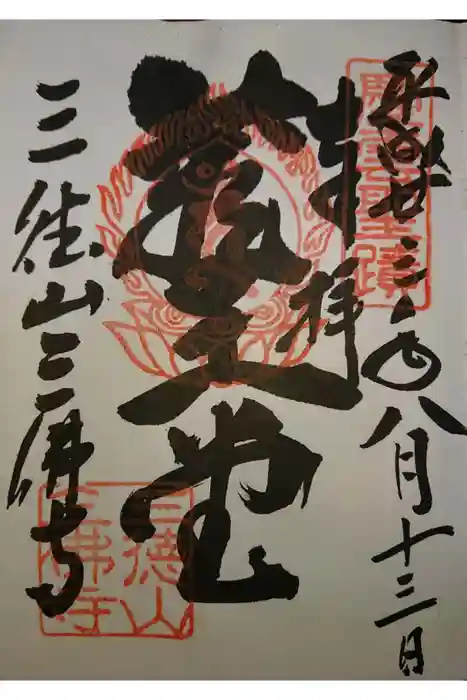 平成廿三年八月十三日
奉拝
蔵王堂
三徳山三佛寺
聖蹟
三徳山
三佛寺